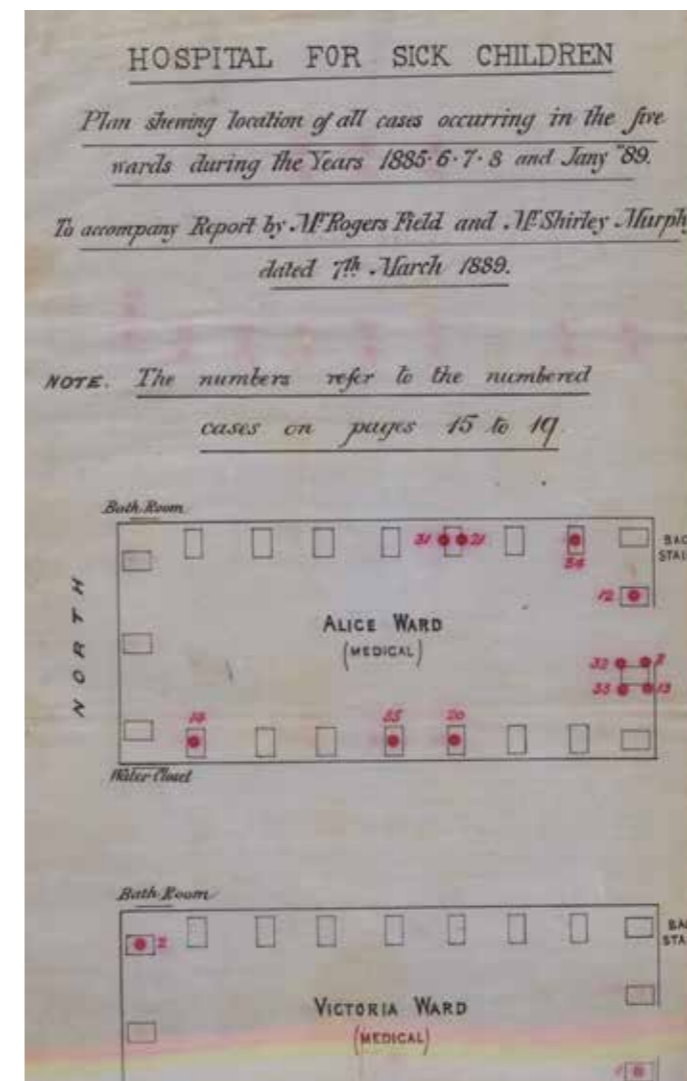 HOSPITAL FOR SICK CHILDREN
Plan shewing location of all cases occurring in the five
wards during the Years 1885·6·7·8 and Jany '89.
To accompany Report by Mr Rogers Field and Mr Shirley Murph
dated 7th March 1889.
NOTE. The numbers refer to the numbered
cases on pages 15 to 19
Bath Room
31 21
34
BAC
STAI
12
NORTH
ALICE WARD
(MEDICAL)
32
33 13
35 20
Water Closet
Bath Room
BA
STA
2
VICTORIA WARD
(MEDICAL)